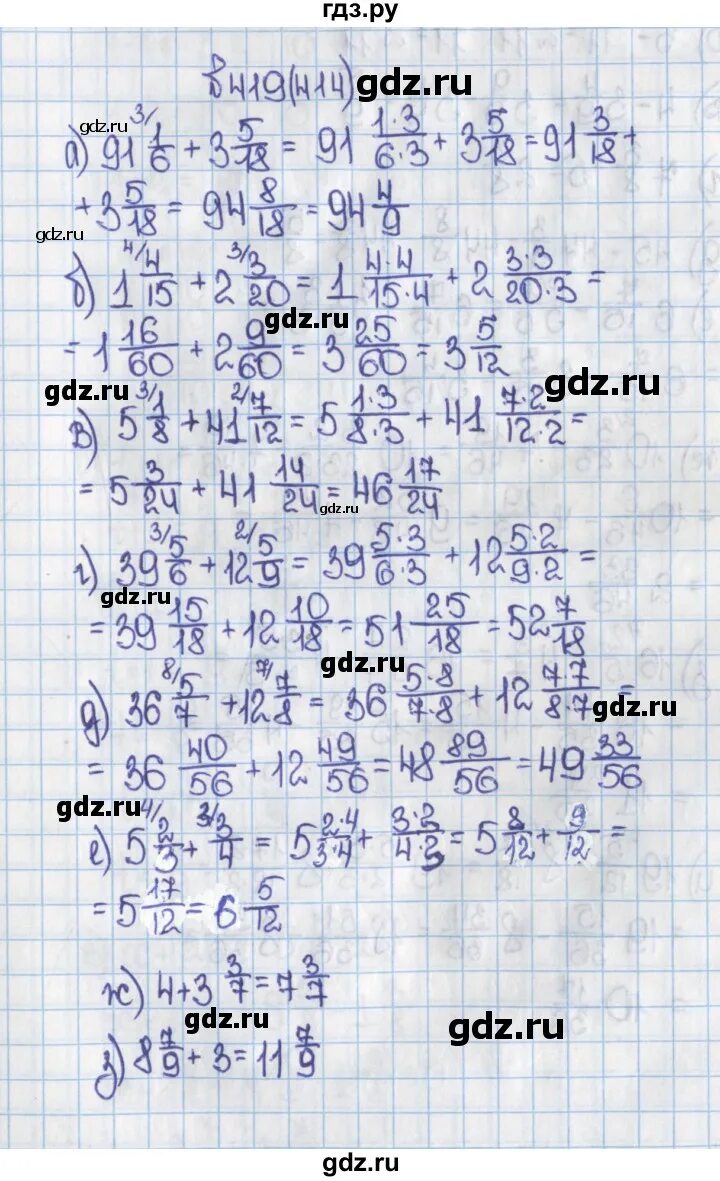 гдз.ру
в 419(414) gdz.ru
а) 91 3/ 1/6 + 3 5/18 = 91 1·3/6·3 + 3 5/18 = 91 3/18 +
+ 3 5/18 = 94 8/18 = 94 4/9
gdz.ru
б) 1 4/ 4/15 + 2 3/ 3/20 = 1 4·4/15·4 + 2 3·3/20·3 =
gdz.ru
= 1 16/60 + 2 9/60 = 3 25/60 = 3 5/12
gdz.ru gdz.ru
в) 5 3/ 1/8 + 41 2/ 7/12 = 5 1·3/8·3 + 41 7·2/12·2 =
= 5 3/24 + 41 14/24 = 46 17/24
gdz.ru
г) 39 3/ 5/6 + 12 2/ 5/9 = 39 5·3/6·3 + 12 5·2/9·2 =
gdz.ru
= 39 15/18 + 12 10/18 = 51 25/18 = 52 7/18
gdz.ru
д) 36 8/ 5/7 + 12 7/ 7/8 = 36 5·8/7·8 + 12 7·7/8·7 =
gdz.ru
= 36 40/56 + 12 49/56 = 48 89/56 = 49 33/56
gdz.ru
е) 5 4/ 2/3 + 3/ 3/4 = 5 2·4/3·4 + 3·2/4·3 = 5 8/12 + 9/12 =
= 5 17/12 = 6 5/12
ж) 4 + 3 3/7 = 7 3/7
gdz.ru gdz.ru
з) 8 7/9 + 3 = 11 7/9
gdz.ru